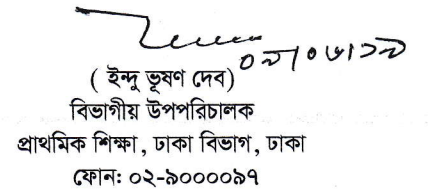 ০৯/০৬/১৯
( ইন্দু ভূষণ দেব)
বিভাগীয় উপপরিচালক
প্রাথমিক শিক্ষা, ঢাকা বিভাগ, ঢাকা
ফোন: ০২-৯০০০০৯৭